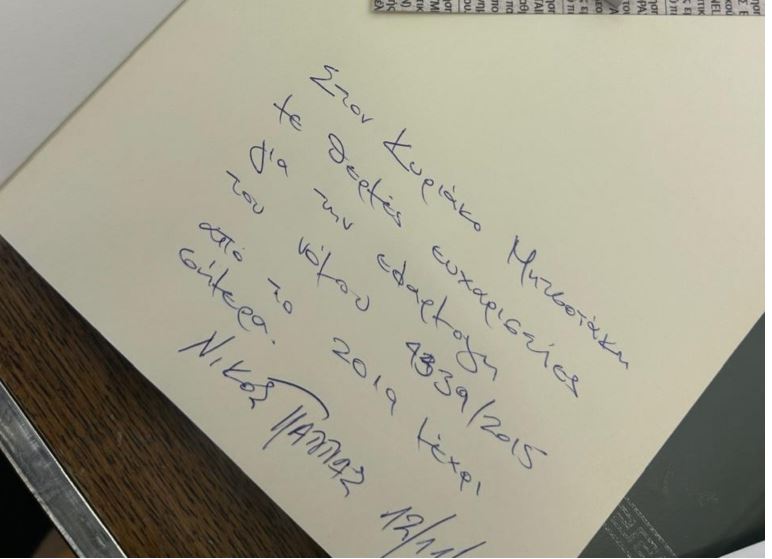 Στον Κυριάκο Μητσοτάκη
με θερμές ευχαριστίες
για την εφαρμογή
του νόμου 4339/2015
από το 2019 μέχρι
σήμερα.
ΝΙΚΟΣ ΠΑΠΠΑΣ
12/11/